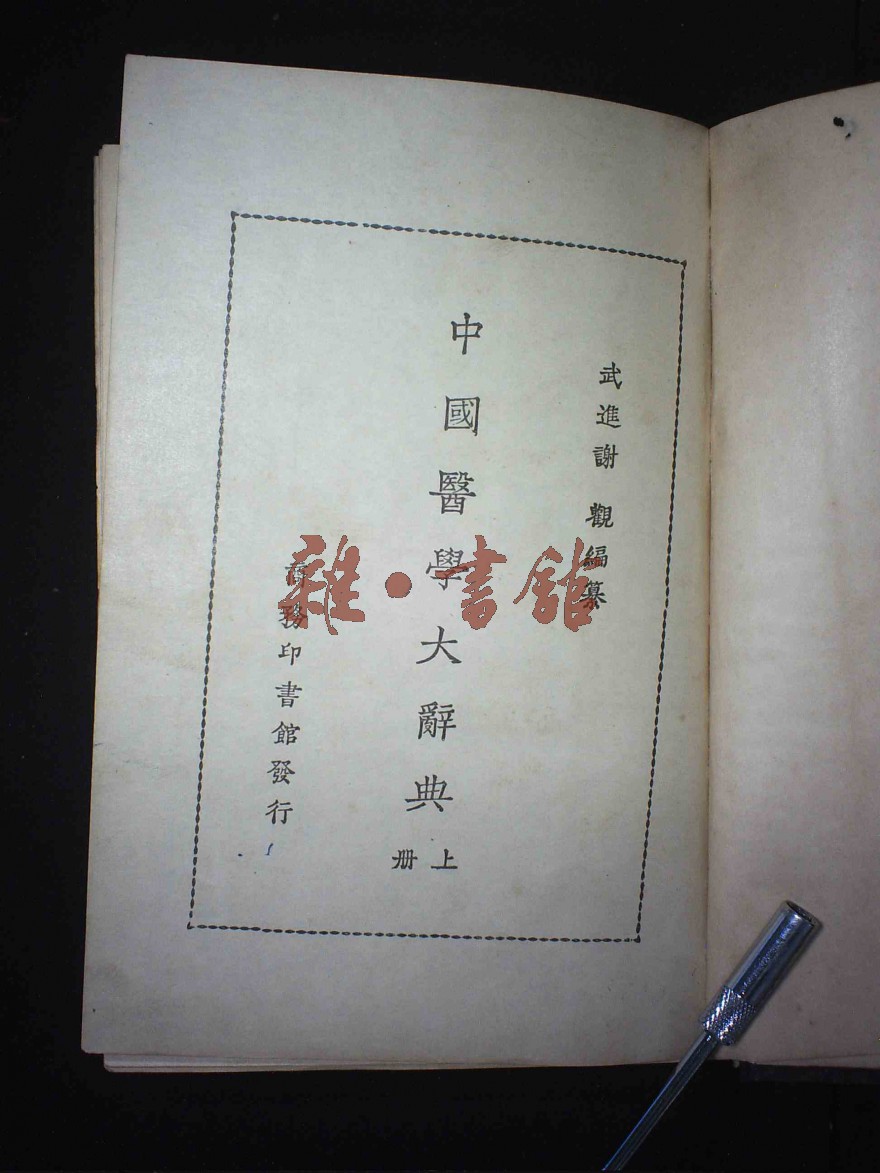 武進謝觀編纂
中國醫學大辭典
上册
商務印書館發行
雜·書館